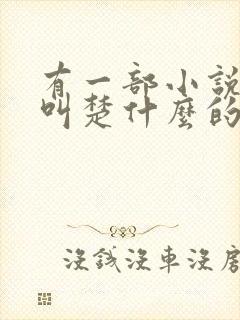 有一部小說
叫楚什麼的
沒錢沒車沒房